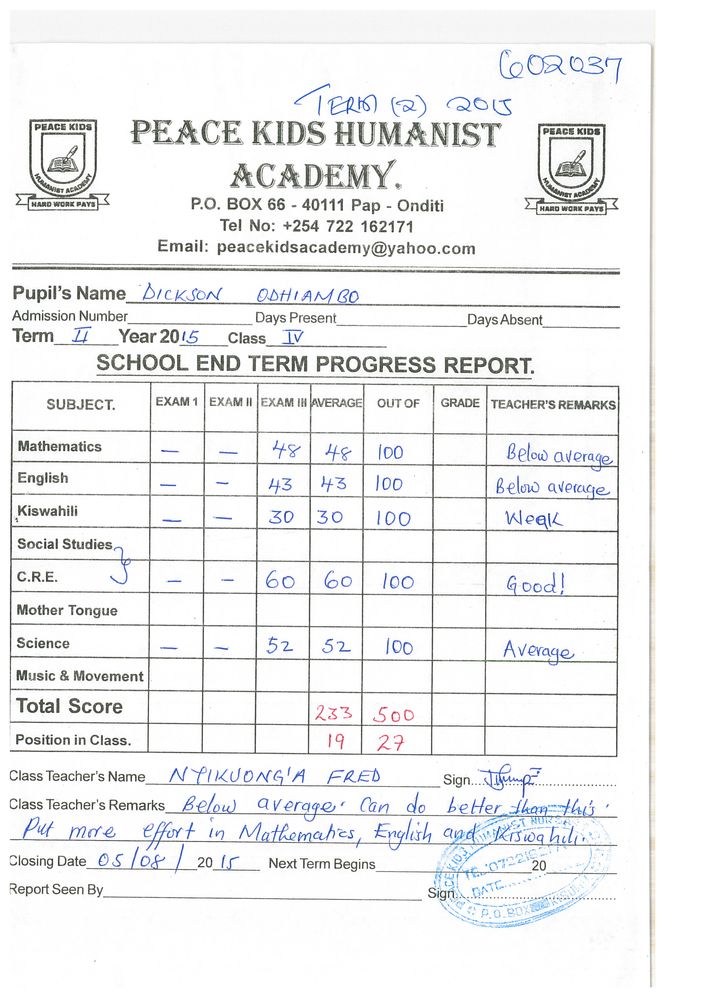 602037
TERM (2) 2015
PEACE KIDS
HUMANIST ACADEMY
HARD WORK PAYS
PEACE KIDS HUMANIST
ACADEMY.
PEACE KIDS
HUMANIST ACADEMY
HARD WORK PAYS
P.O. BOX 66 - 40111 Pap - Onditi
Tel No: +254 722 162171
Email: peacekidsacademy@yahoo.com
Pupil's Name DICKSON ODHIAMBO
Admission Number Days Present Days Absent
Term II Year 2015 Class IV
SCHOOL END TERM PROGRESS REPORT.
SUBJECT. EXAM 1 EXAM II EXAM III AVERAGE OUT OF GRADE TEACHER'S REMARKS
Mathematics — — 48 48 100 Below average
English – – 43 43 100 Below average
Kiswahili — – 30 30 100 Weak
Social Studies
C.R.E. – – 60 60 100 Good!
Mother Tongue
Science — – 52 52 100 Average
Music & Movement
Total Score 233 500
Position in Class. 19 27
Class Teacher's Name NYIKUONG'A FRED Sign
Class Teacher's Remarks Below average. Can do better than this.
Put more effort in Mathematics, English and Kiswahili.
Closing Date 05/08/ 2015 Next Term Begins 20
Report Seen By Sign
DATE
P.O. BOX